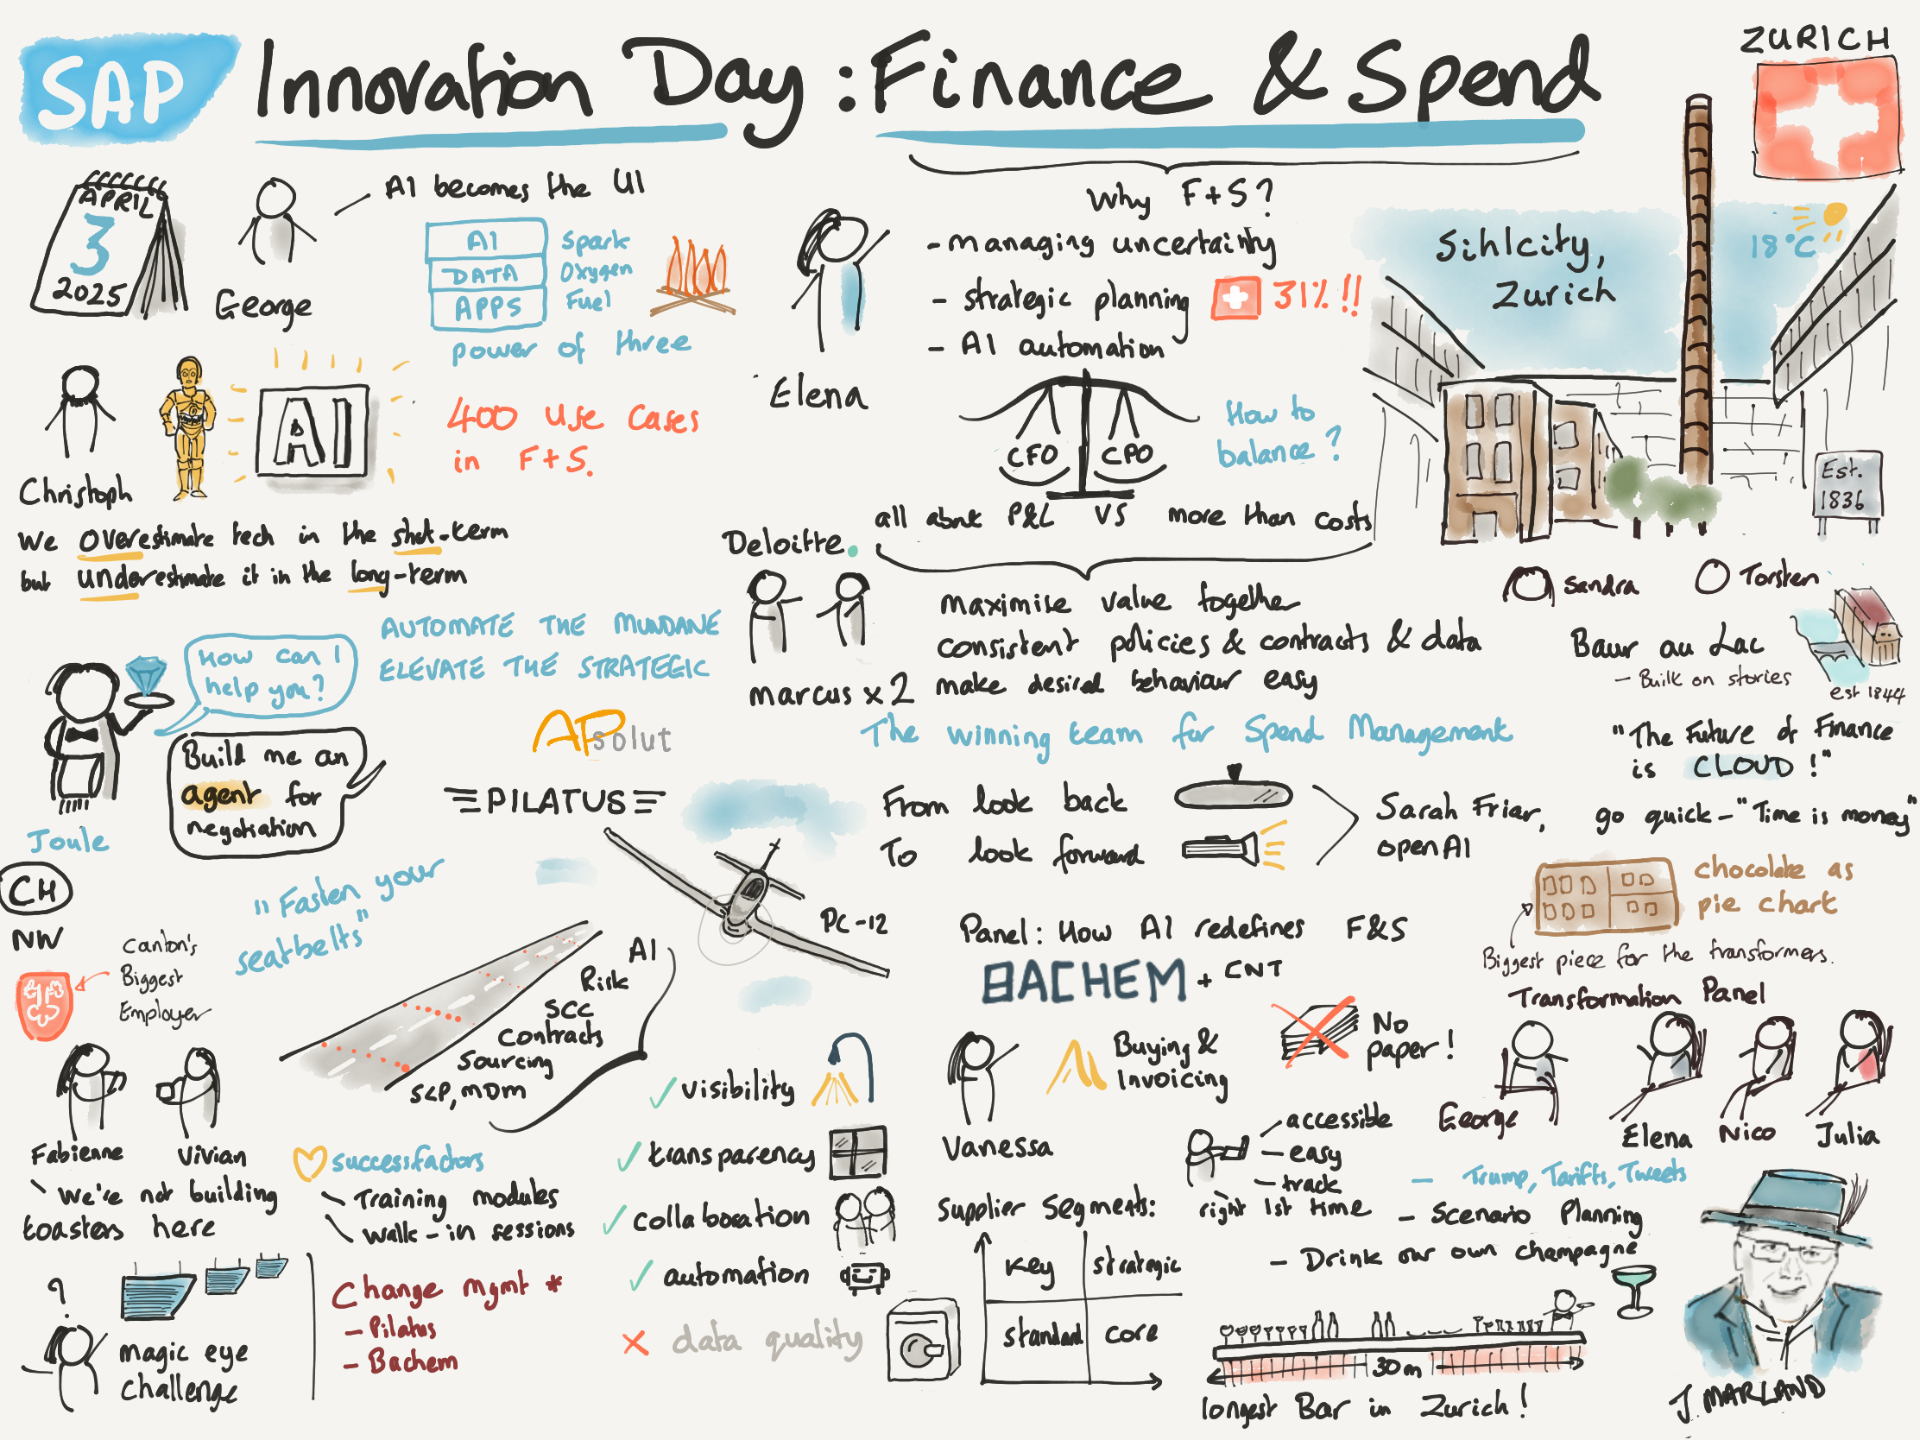 SAP Innovation Day : Finance & Spend
ZURICH
APRIL
3
2025
George
AI becomes the UI
AI Spark
DATA Oxygen
APPS Fuel
power of three
Christoph
AI
400 use cases
in F+S.
We overestimate tech in the short-term
but underestimate it in the long-term
Elena
Why F+S?
- managing uncertainty
- strategic planning
31% !!
- AI automation
CFO
CPO
How to
balance?
all about P&L VS more than costs
Sihlcity,
Zurich
18°C
Est.
1836
AUTOMATE THE MUNDANE
ELEVATE THE STRATEGIC
How can I
help you?
Build me an
agent for
negotiation
Joule
Deloitte.
marcus x 2
maximise value together
consistent policies & contracts & data
make desired behaviour easy
The winning team for Spend Management
Sandra
Torsten
Baur au Lac
- Built on stories
est 1844
"The Future of Finance
is CLOUD!"
go quick - "Time is money"
chocolate as
pie chart
Biggest piece for the transformers.
APsolut
PILATUS
From look back
To look forward
Sarah Friar,
open AI
CH
NW
Canton's
Biggest
Employer
"Fasten your
seatbelts"
PC-12
AI
Risk
SCC
Contracts
Sourcing
SLP, MDM
Fabienne
Vivian
we're not building
toasters here
successfactors
Training modules
walk-in sessions
magic eye
challenge
?
Change mgmt *
- Pilatus
- Bachem
visibility
transparency
collaboration
automation
data quality
Panel: How AI redefines F&S
BACHEM + CNT
Vanessa
Buying &
Invoicing
No
paper!
accessible
easy
track
right 1st time
Supplier Segments:
Key
strategic
standard
core
Transformation Panel
George
Elena
Nico
Julia
- Trump, Tariffs, Tweets
- Scenario Planning
- Drink our own champagne
30m
longest Bar in Zurich!
J. MARLAND